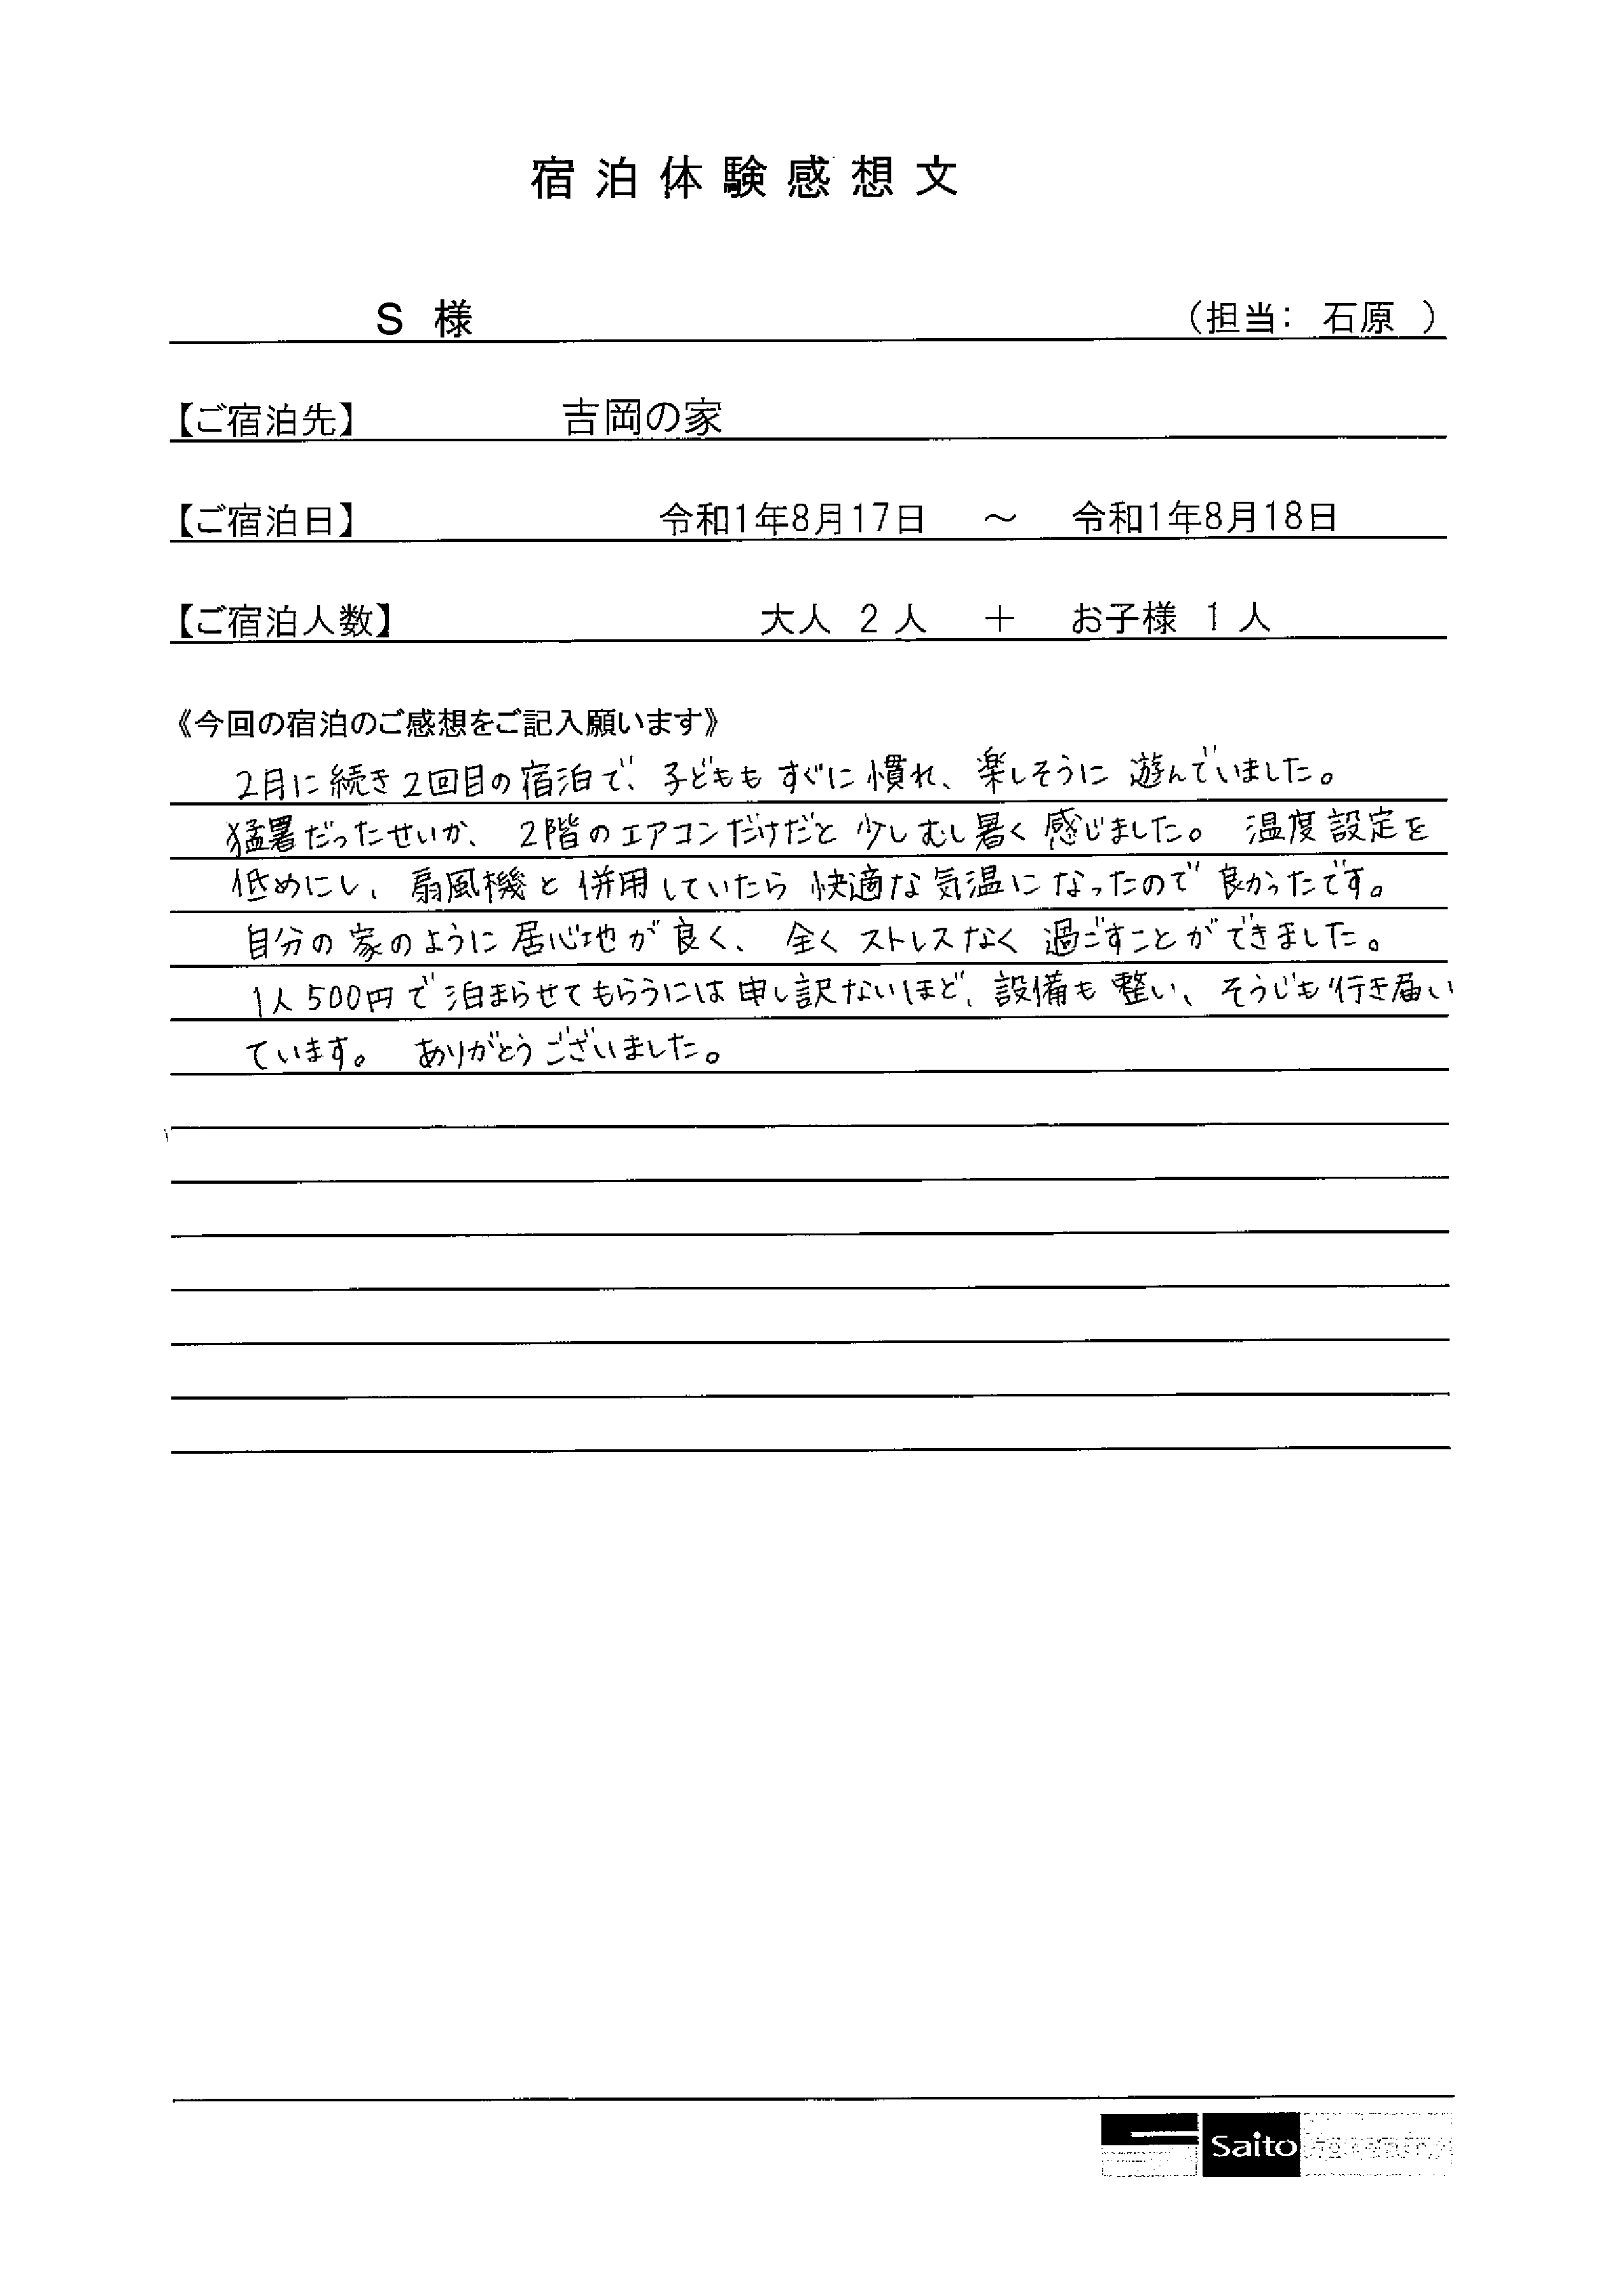 宿泊体験感想文
S 様 （担当： 石原 ）
【ご宿泊先】 吉岡の家
【ご宿泊日】 令和1年8月17日 ～ 令和1年8月18日
【ご宿泊人数】 大人 2 人 ＋ お子様 1 人
《今回の宿泊のご感想をご記入願います》
2月に続き2回目の宿泊で、子どももすぐに慣れ、楽しそうに遊んでいました。
猛暑だったせいか、2階のエアコンだけだと少しむし暑く感じました。 温度設定を
低めにし、扇風機と併用していたら快適な気温になったので良かったです。
自分の家のように居心地が良く、全くストレスなく過ごすことができました。
1人500円で泊まらせてもらうには申し訳ないほど、設備も整い、そうじも行き届い
ています。 ありがとうございました。
Saito